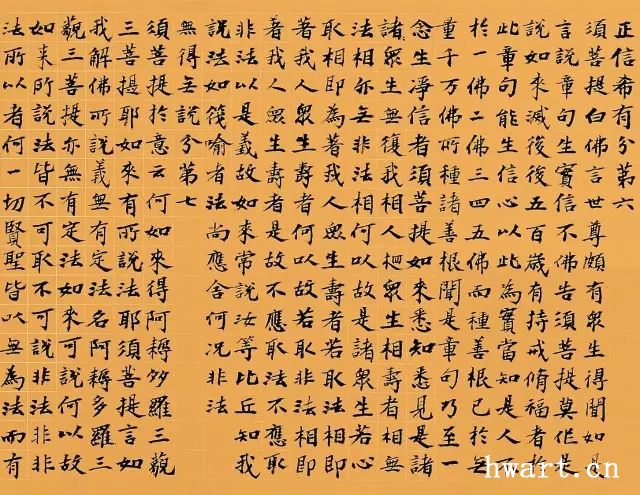 正信希有分第六
須菩提白佛言世尊頗有眾生得聞如是
言說章句生實信不佛告須菩提莫作是
說如來滅後後五百歲有持戒脩福者於
此章句能生信心以此為實當知是人不
於一佛二佛三四五佛而種善根已於無
量千万佛所種諸善根聞是章句乃至一
念生淨信者須菩提如來悉知悉見是諸
諸眾生無復我相人相眾生相壽者相無
法相亦無非法相何以故是諸眾生若心
取相即為著我人眾生壽者若取法相即
著我人眾生壽者何以故若取非法相即
著我人眾生壽者是故不應取法不應取
非法以是義故如來常說汝等比丘知我
說法如筏喻者法尚應舍何況非法
無得無說分第七
須菩提於意云何如來得阿耨多羅三藐
三菩提耶如來有所說法耶須菩提言如
我解佛所說義無有定法名阿耨多羅三
藐三菩提亦無有定法如來可說何以故
如來所說法皆不可取不可說非法非非
法所以者何一切賢聖皆以無為法而有
hwart.cn